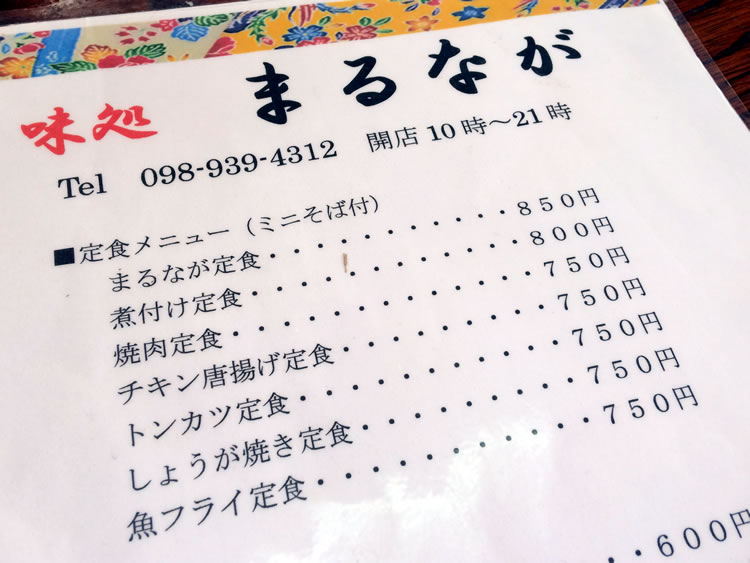 味処 まるなが
Tel 098-939-4312 開店 10時～21時
■定食メニュー（ミニそば付）
まるなが定食・・・・・・・・・・・850円
煮付け定食・・・・・・・・・・・・800円
焼肉定食・・・・・・・・・・・・・750円
チキン唐揚げ定食・・・・・・・・・750円
トンカツ定食・・・・・・・・・・・750円
しょうが焼き定食・・・・・・・・・750円
魚フライ定食・・・・・・・・・・・750円
・・600円